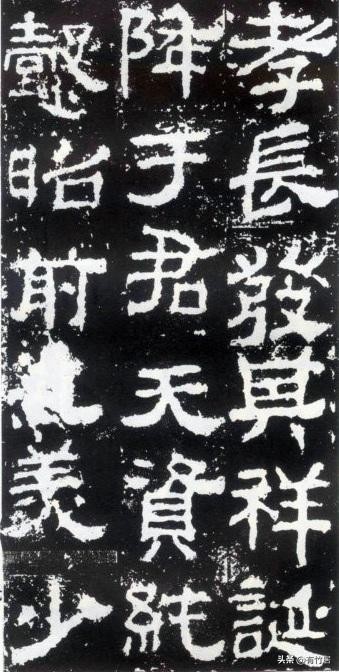 孝長發其祥誕
降于君天資純
懿昭前之美少
头条 @有竹居